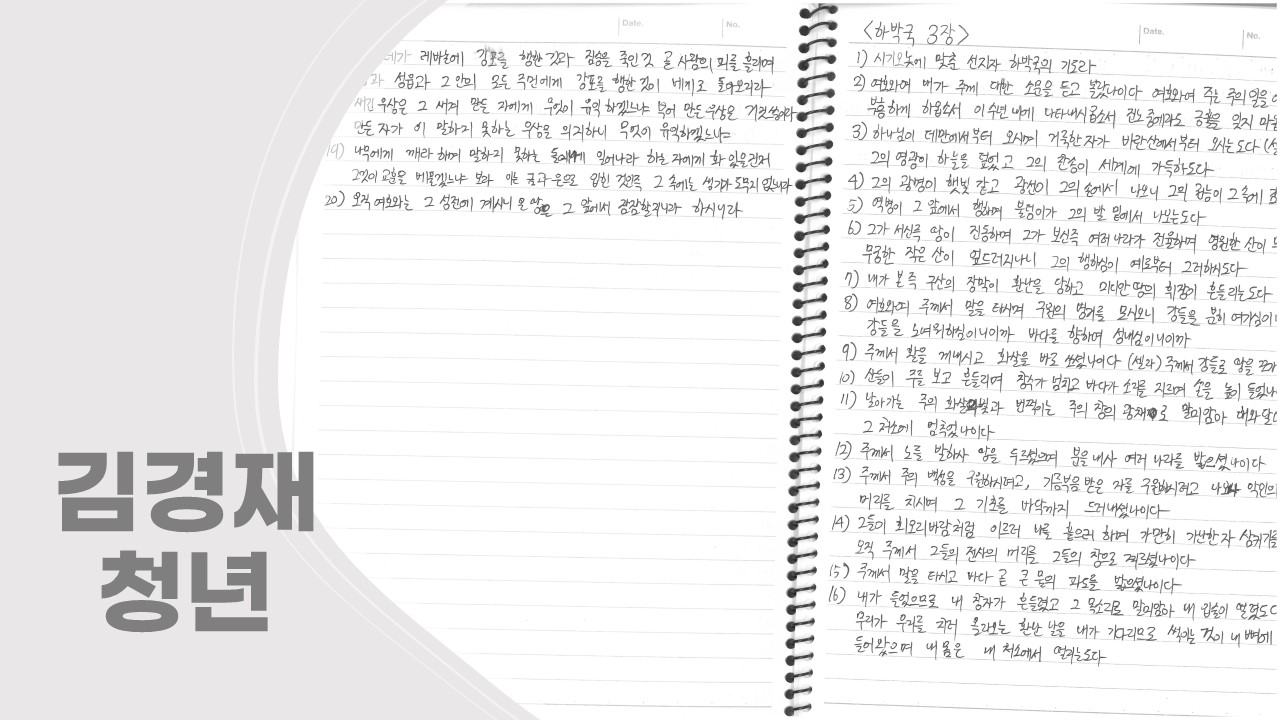 Date.
No.
네가 레바논에 강포를 행한 것과 짐승을 죽인 것 곧 사람의 피를 흘리며
과 성읍과 그 안의 모든 주민에게 강포를 행한 것이 네게로 돌아오리라
새긴 우상은 그 새겨 만든 자에게 무엇이 유익하겠느냐 부어 만든 우상은
만든 자가 이 말하지 못하는 우상을 의지하니 무엇이 유익하겠느냐
19) 나무에게 깨라 하며 말하지 못하는 돌에게 일어나라 하는 자에게 화 있을진저
그것이 교훈을 베풀겠느냐 보라 이는 금과 은으로 입힌 것인즉 그 속에는 생기가 도무지 없느니라
20) 오직 여호와는 그 성전에 계시니 온 땅은 그 앞에서 잠잠할지니라 하시니라
Date.
No.
<하박국 3장>
1) 시기오놋에 맞춘 선지자 하박국의 기도라
2) 여호와여 내가 주께 대한 소문을 듣고 놀랐나이다 여호와여 주는 주의 일을
부흥하게 하옵소서 이 수년 내에 나타내시옵소서 진노 중에라도 긍휼을 잊지
3) 하나님이 데만에서부터 오시며 거룩한 자가 바란 산에서부터 오시는도다
그의 영광이 하늘을 덮었고 그의 찬송이 세계에 가득하도다
4) 그의 광명이 햇빛 같고 광선이 그의 손에서 나오니 그의 권능이 그 속에
5) 역병이 그 앞에서 행하며 불덩이가 그의 발 밑에서 나오는도다
6) 그가 서신즉 땅이 진동하며 그가 보신즉 여러 나라가 전율하며 영원한 산이
무궁한 작은 산이 엎드러지나니 그의 행하심이 예로부터 그러하시도다
7) 내가 본즉 구산의 장막이 환난을 당하고 미디안 땅의 휘장이 흔들리는도다
8) 여호와여 주께서 말을 타시며 구원의 병거를 모시오니 강들을 분히 여기심이니
강들을 노여워하심이니이까 바다를 향하여 성내심이니이까
9) 주께서 활을 꺼내시고 화살을 바로 쏘셨나이다 (셀라) 주께서 강들로 땅을
10) 산들이 주를 보고 흔들리며 창수가 넘치고 바다가 소리를 지르며 손을 높이
11) 날아가는 주의 화살의 빛과 번쩍이는 주의 창의 광채로 말미암아 해와
그 처소에 멈추었나이다
12) 주께서 노를 발하사 땅을 두르셨으며 분을 내사 여러 나라를 밟으셨나이다
13) 주께서 주의 백성을 구원하시려고, 기름부음 받은 자를 구원하시려고 나오사 악인의
머리를 치시며 그 기초를 바닥까지 드러내셨나이다
14) 그들이 회오리바람처럼 이르러 나를 흩으려 하며 가만히 가난한 자
오직 주께서 그들의 전사의 머리를 그들의 창으로 찌르셨나이다
15) 주께서 말을 타시고 바다 곧 큰 물의 파도를 밟으셨나이다
16) 내가 들었으므로 내 창자가 흔들렸고 그 목소리로 말미암아 내 입술이
무리가 우리를 치러 올라오는 환난 날을 내가 기다리므로 썩이는 것이 내 뼈에
들어왔으며 내 몸은 내 처소에서 떨리는도다
김경재
청년